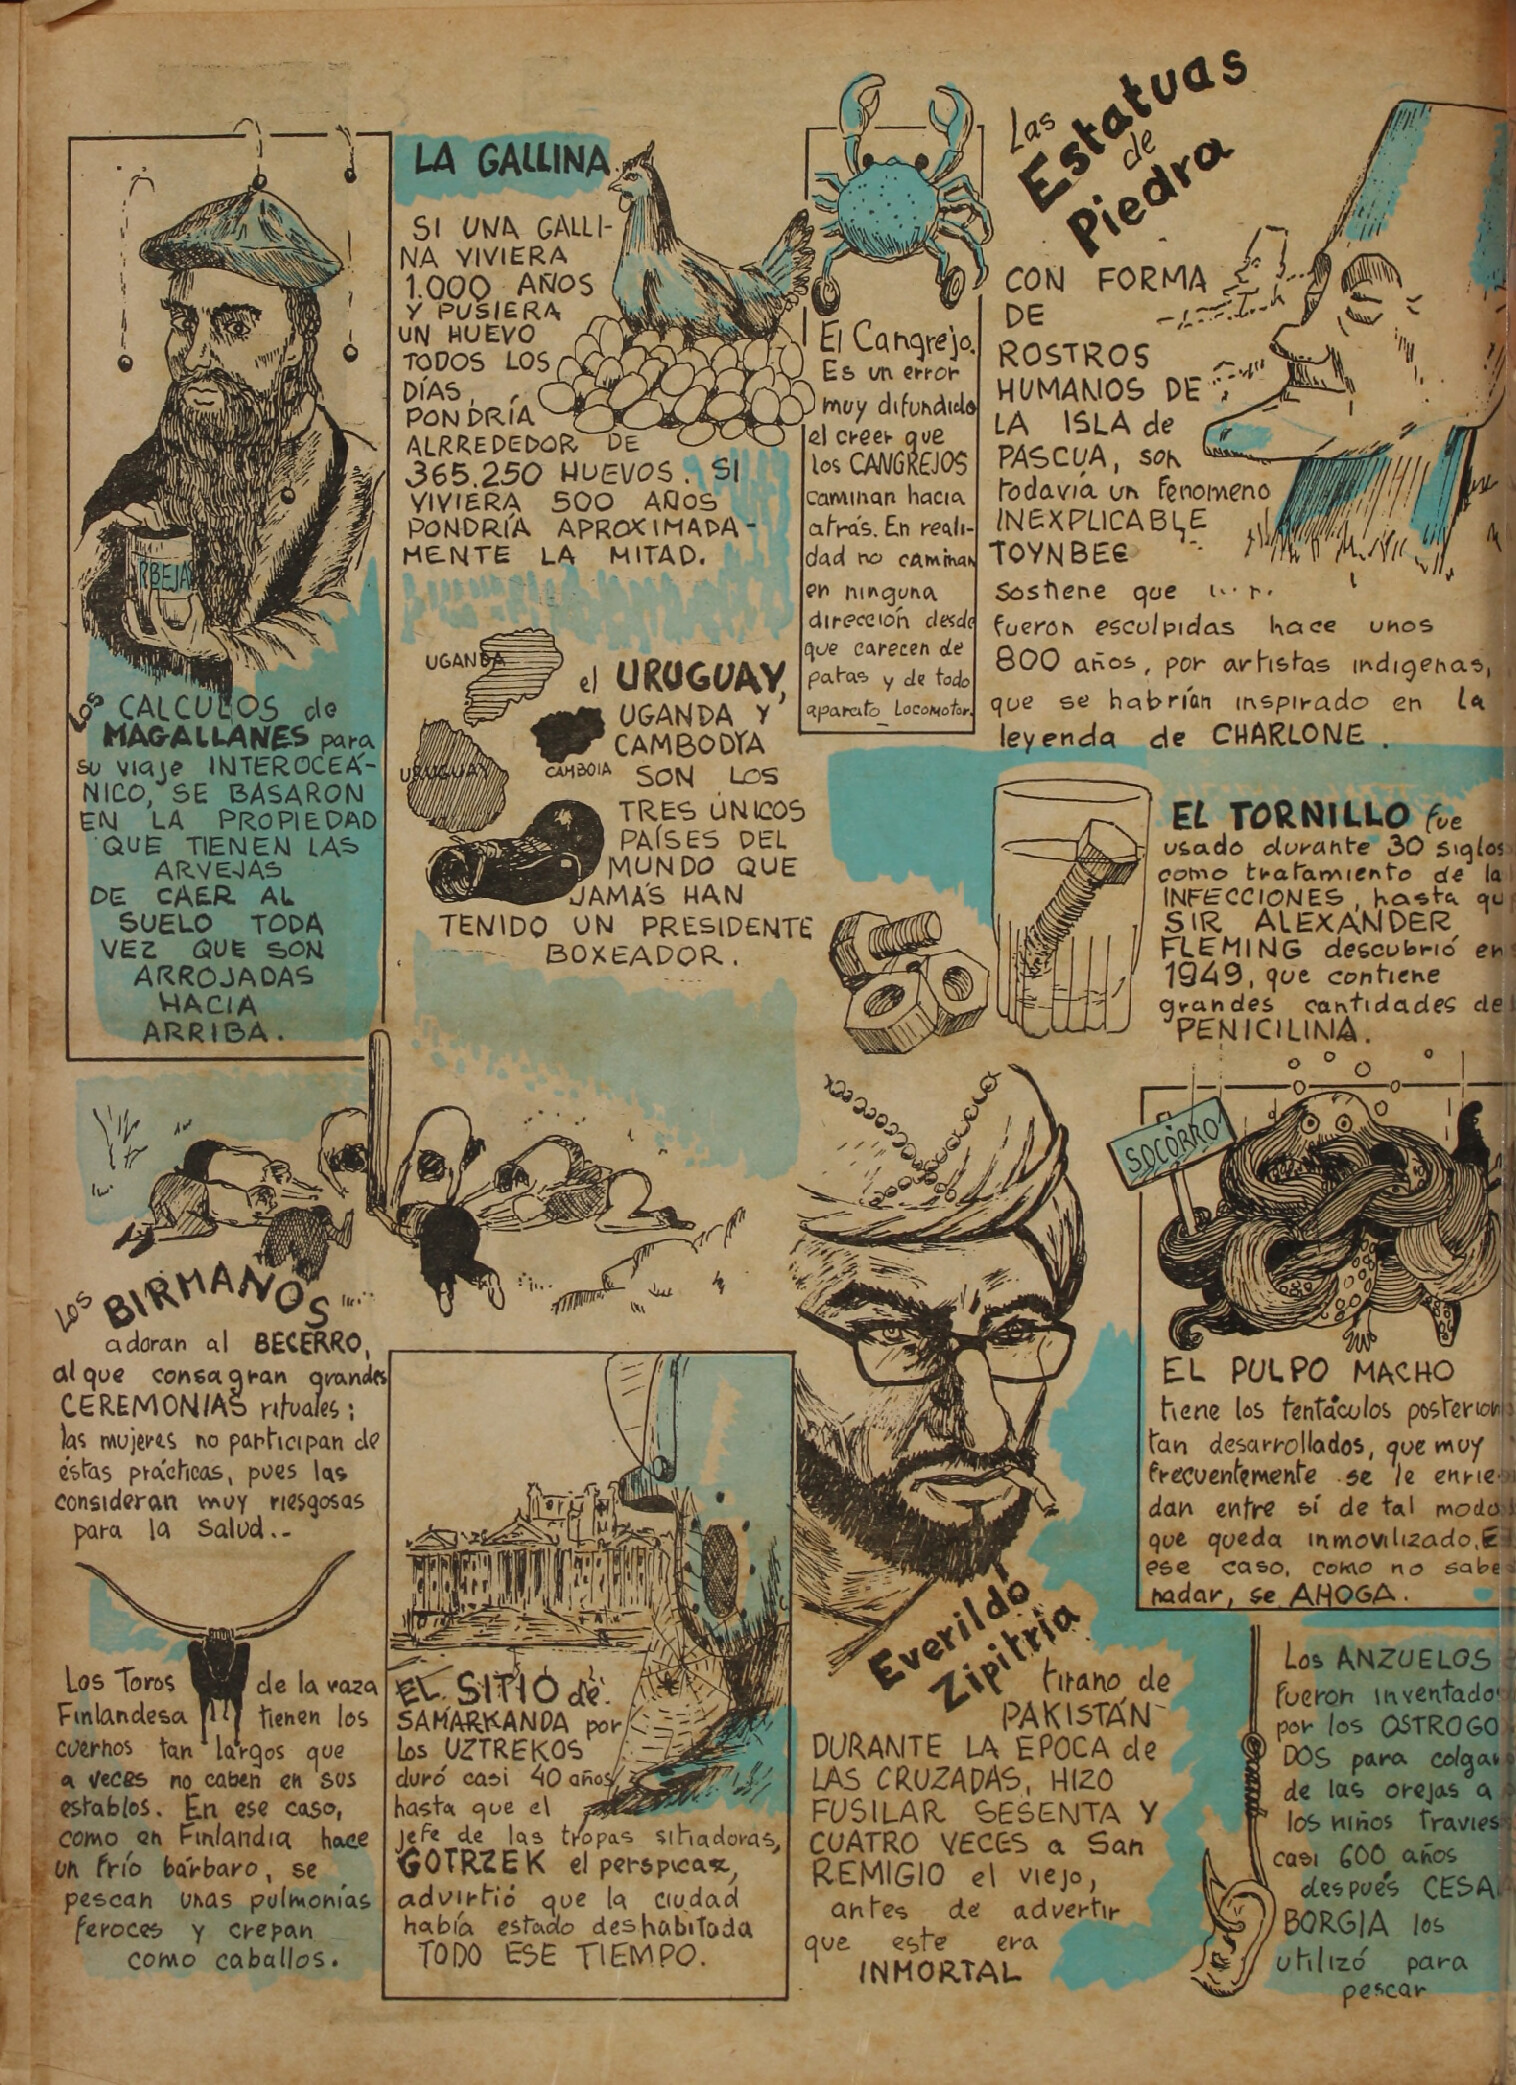 RBEJA
LOS
CALCULOS de
MAGALLANES para
su viaje INTEROCEÁ-
NICO, SE BASARON
EN LA PROPIEDAD
QUE TIENEN LAS
ARVEJAS
DE CAER AL
SUELO TODA
VEZ QUE SON
ARROJADAS
HACIA
ARRIBA.
LA GALLINA.
SI UNA GALLI-
NA VIVIERA
1.000 AÑOS
Y PUSIERA
UN HUEVO
TODOS LOS
DÍAS,
PONDRÍA
ALRREDEDOR DE
365.250 HUEVOS. SI
VIVIERA 500 AÑOS
PONDRÍA APROXIMADA-
MENTE LA MITAD.
El Cangrejo.
Es un error
muy difundido
el creer que
los CANGREJOS
caminan hacia
atrás. En reali-
dad no caminan
en ninguna
dirección desde
que carecen de
patas y de todo
aparato Locomotor.
Las
Estatuas
de
Piedra
CON FORMA
DE
ROSTROS
HUMANOS DE
LA ISLA de
PASCUA, son
todavía un fenomeno
INEXPLICABLE
TOYNBEE
sostiene que
fueron esculpidas hace unos
800 años, por artistas indigenas,
que se habrían inspirado en la
leyenda de CHARLONE.
UGANDA
URUGUAY
CAMBOIA
el URUGUAY,
UGANDA Y
CAMBODYA
SON LOS
TRES ÚNICOS
PAÍSES DEL
MUNDO QUE
JAMÁS HAN
TENIDO UN PRESIDENTE
BOXEADOR.
EL TORNILLO fue
usado durante 30 siglos
como tratamiento de la
INFECCIONES, hasta qu
SIR ALEXANDER
FLEMING descubrió en
1949, que contiene
grandes cantidades de
PENICILINA.
LOS
BIRMANOS
adoran al BECERRO,
al que consagran grandes
CEREMONIAS rituales;
las mujeres no participan de
éstas prácticas, pues las
consideran muy riesgosas
para la salud.-
SOCORRO
EL PULPO MACHO
tiene los tentáculos posterior
tan desarrollados, que muy
frecuentemente se le enrie-
dan entre sí de tal modo
que queda inmovilizado. E
ese caso, como no sabe
nadar, se AHOGA.
Los Toros de la raza
Finlandesa tienen los
cuernos tan largos que
a veces no caben en sus
establos. En ese caso,
como en Finlandia hace
un frío bárbaro, se
pescan unas pulmonías
feroces y crepan
como caballos.
EL SITIO de
SAMARKANDA por
los UZTREKOS
duró casi 40 años,
hasta que el
jefe de las tropas sitiadoras,
GOTRZEK el perspicaz,
advirtió que la ciudad
había estado deshabitada
TODO ESE TIEMPO.
Everildo
Zipitría
tirano de
PAKISTÁN
DURANTE LA EPOCA de
LAS CRUZADAS, HIZO
FUSILAR SESENTA Y
CUATRO VECES a San
REMIGIO el viejo,
antes de advertir
que este era
INMORTAL
Los ANZUELOS
fueron inventados
por los OSTROGO
DOS para colgar
de las orejas a
los niños travies
casi 600 años
después CESA
BORGIA los
utilizó para
pescar